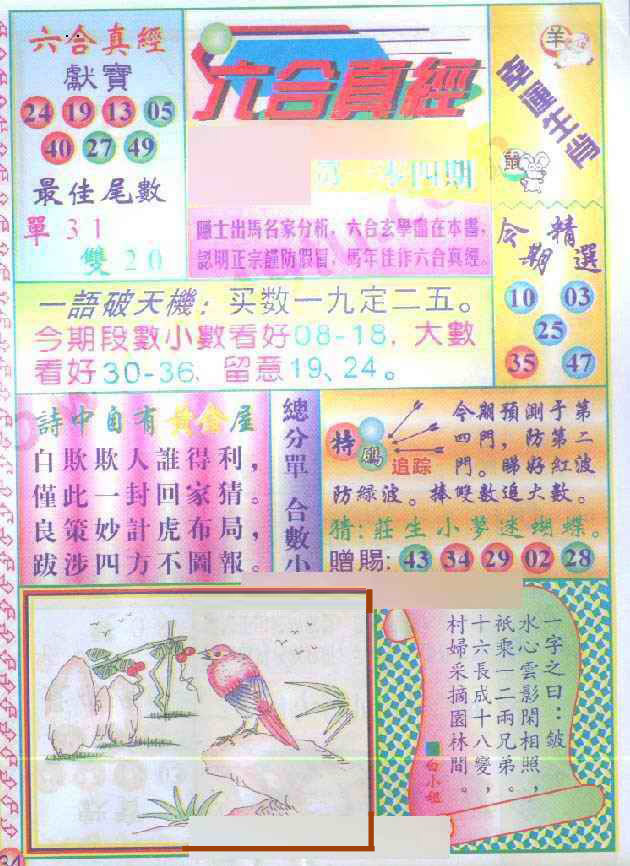 六合真經
獻寶
24 19 13 05
40 27 49
最佳尾數
單31
雙20
六合真經
第一零四期
隱士出馬名家分析，六合玄學盡在本書，
認明正宗謹防假冒，馬年佳作六合真經。
羊
幸運生肖
鼠
今期精選
10 03
25
35 47
一語破天機：买数一九定二五。
今期段數小數看好08-18，大數
看好30-36，留意19、24。
詩中自有黃金屋
自欺欺人誰得利，
僅此一封回家猜。
良策妙計虎布局，
跋涉四方不圖報。
總分單 合數小
特碼
追踪
今期預測于第
四門，防第二
門。睇好紅波
防綠波。捧雙數追大數。
猜：莊生小夢迷蝴蝶。
贈賜：43 34 29 02 28
一字之曰：皴
水心雲影閑相照，
祇乘一二兩兄弟。
十六長成十八變，
村婦采摘園林間。
白小姐